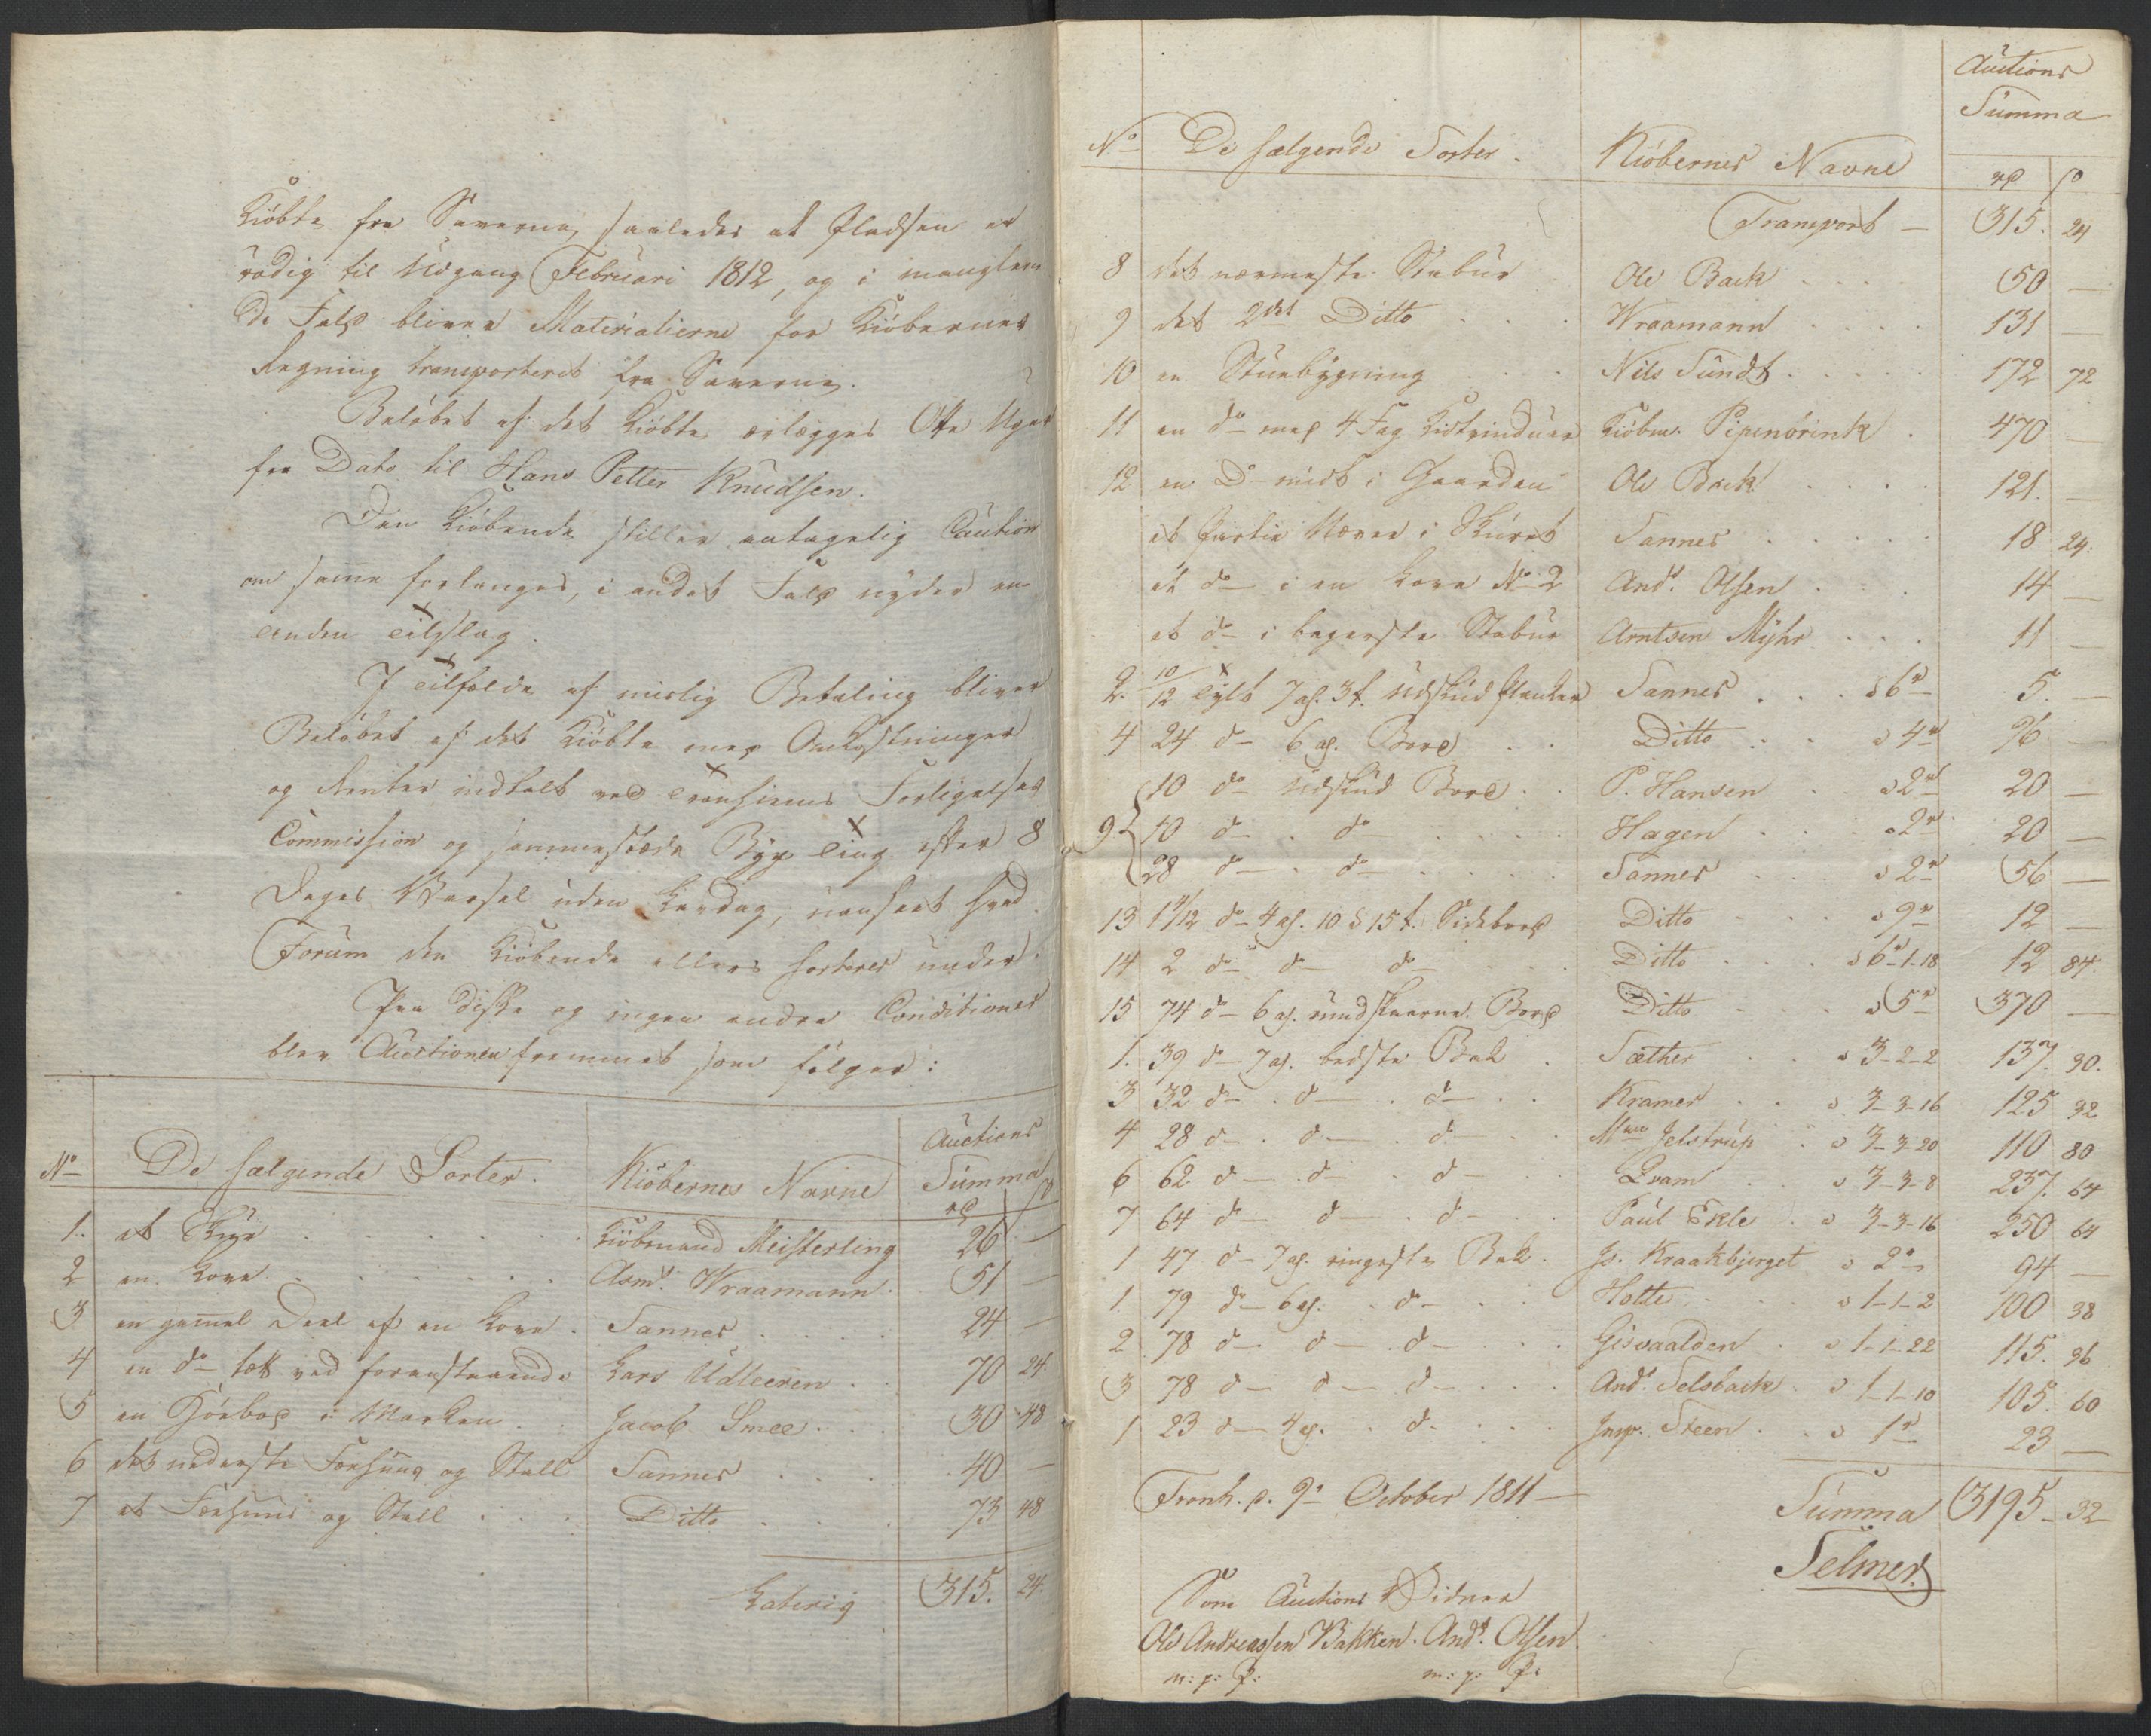 Kiöbte fra Saverne, saaledes at Pladsen er
rödig til Udgang Februari 1812, og i manglen
de Fald bliver Materialierne for Kiöbernes
Regning transporteret fra Saverne.
Belöbet af det Kiöbte erlægges Otte Uger
fra Dato til Hans Petter Knudsen.
Den Kiöbende stiller antagelig Caution
om samme forlanges, i andet Fald nyder en
anden Tilslag.
I Tilfælde af mislig Betaling bliver
Belöbet af det Kiöbte med Omkostninger
og Renter indtalt ved Tronhiems Forligelses
Commission og sammestæds Bye Ting efter 8
Dages Varsel uden Lavdag, uanseet hvad
Forum den Kiöbende ellers sorterer under.
Paa disse og ingen andre Conditioner
blev Auctionen fremmet som fölger:
No De sælgende Sorter. Kiöbernes Navne Auctions Summa
rd s
1. et Skur Kiöbmand Meisterling 26 —
2 en Love Asm. Wraamann 51 —
3 en gamel Deel af en Love Sannes 24 —
4 en do tæt ved foranstaaende Lars Udleeren 70 24
5 en Höebod i Marken Jacob Smee 30 48
6 det nederste Foehuus og Stall Sannes 40 —
7 et Foehuus og Stall Ditto 73 48
Laterig 315. 24.
Auctions
Summa
No De sælgende Sorter. Kiöbernes Navne rd s
Transport — 315. 24
8 det nærmeste Stabur Ole Back 50 —
9 det 2det Ditto Wraamann 131 —
10 en Stuebygning Nils Sundt 172 72
11 en do med 4 Fag Vinduer Kiöbm. Pipenörink 470 —
12 en Do midt i Gaarden Ole Back 121. —
et Partie i Skuret Sannes 18 24.
et do i en Love No 2 And. Olsen 14 —
et do i bagerste Stabur Arntsen Myhr 11 —
2. 10/12 Tylt 7 al. 3 t. Udskud Planker Sannes à 6 rd 5. —
4 24 do 6 al. Bord Ditto à 4 rd 96 —
9 { 10 do Udskud Bord P. Hansen à 2 rd 20 —
10 do do Hagen à 2 rd 20 —
28 do do Sannes à 2 rd 56 —
13 1 4/12 do 4 al. 10 à 15 t. Sidebord Ditto à 9 rd 12 —
14 2 do do do Ditto à 6-1-18 12 84.
15 74 do 6 al. rundskaarne Bord Ditto à 5 rd 370 —
1. 39 do 7 al. bedste Bak Sæther à 3-2-2 137. 30.
3 32 do do do Kramer à 3-3-16 125 32
4 28 do do do Jelstrup à 3-3-20 110 80
6 62 do do do Pram à 3-3-8 237. 64
7 64 do do do Paul Ekle à 3-3-16 250 64
1 47 do 7 al. ringeste Bak Js. Kraakbjerget à 2 rd 94 —
1. 79 do 6 al. do Holte à 1-1-2 100 38
2 78 do do do Gisvaalden à 1-1-22 115. 36
3 78 do do do And. Selsback à 1-1-10 105. 60
1 23 do 4 al. do Insp. Steen à 1 rd 23 —
Tronh. d. 9de October 1811 — Summa 3195 - 32
Selmer
Som Auctions Vidner
Ole Andreassen Bakken. And. Olsen
m: p: P: m: p: P: